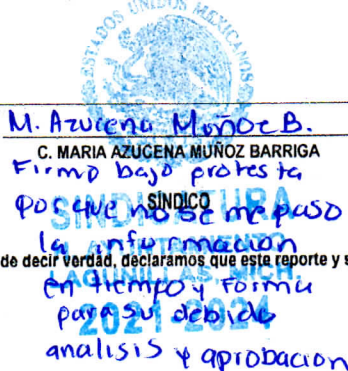 ESTADOS UNIDOS MEXICANOS
M. Azucena Muñoz B.
C. MARIA AZUCENA MUÑOZ BARRIGA
Firmo bajo protesta
SÍNDICO
porque no se me paso
SINDICATURA
la información
de decir verdad, declaramos que este reporte y s
LAGUNILLAS, MICH.
en tiempo y forma
para su debido
2021-2024
analisis y aprobacion